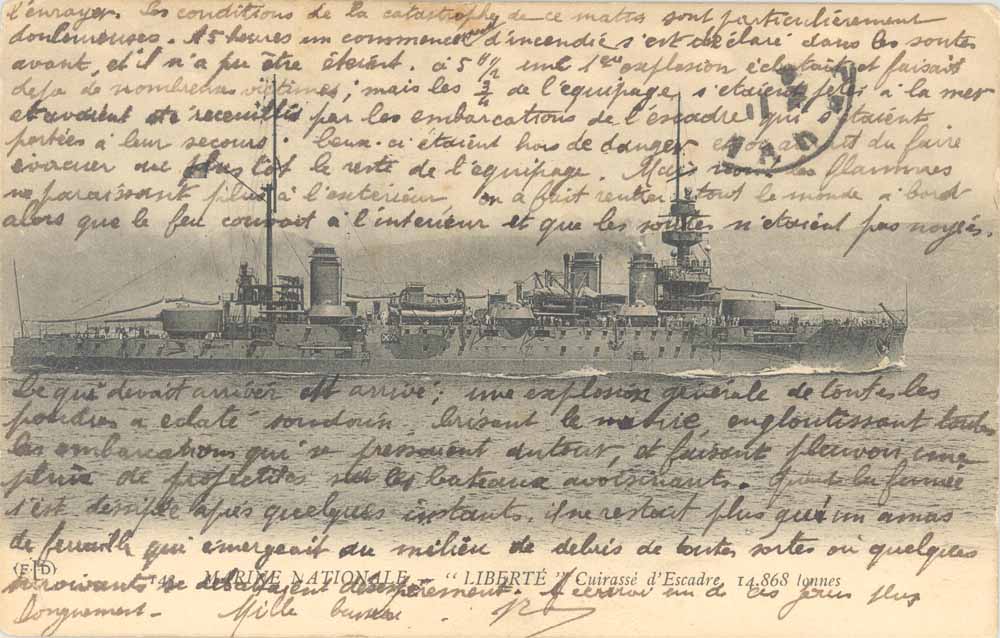 l'enrayer. Les conditions de la catastrophe de ce matin sont particulièrement
douloureuses. A 5 heures un commencement d'incendie s'est déclaré dans les soutes
avant, et il n'a pu être éteint. à 5 h 1/2 une 1ère explosion éclatait et faisait
déja de nombreuses victimes; mais les 3/4 de l'équipage s'etaient jetés à la mer
et avaient été recueillis par les embarcations de l'escadre qui s'étaient
portées à leur secours. Ceux-ci étaient hors de danger et on aurait du faire
évacuer au plus tôt le reste de l'équipage. Mais les flammes
ne paraissant plus à l'extérieur on a fait rentrer tout le monde à bord
alors que le feu couvait à l'intérieur et que les soutes n'etaient pas noyées.
Ce qui devait arriver est arrivé; une explosion générale de toutes les
poudres a eclaté soudain, brisant le navire, engloutissant toutes
les embarcations qui se pressaient autour, et faisant pleuvoir une
pluie de projectiles sur les bateaux avoisinants. Quand la fumée
s'est dissipée après quelques instants, il ne restait plus qu'un amas
de ferraille qui émergeait au milieu de débris de toutes sortes où quelques
(E.L.D)
MARINE NATIONALE — "LIBERTÉ" Cuirassé d'Escadre, 14.868 tonnes
survivants se débattaient désespérement. J'écrirai un de ces jours plus
longuement. Mille baisers